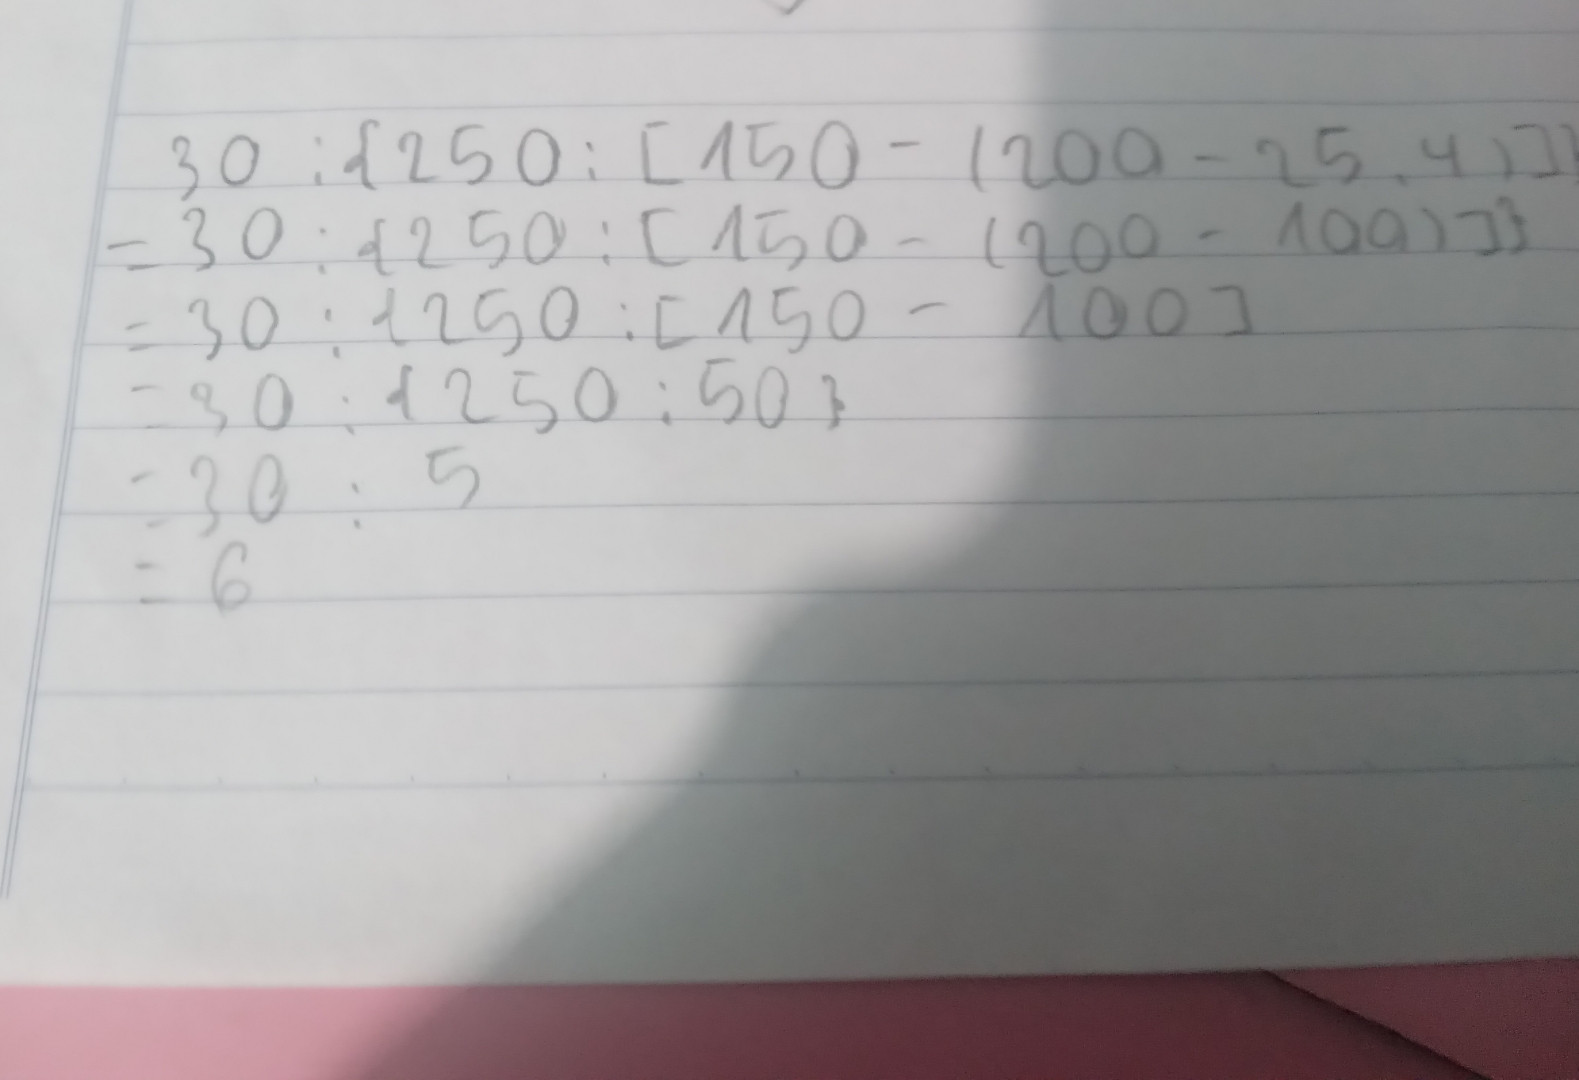 30 : {250 : [150 - (200 - 25 . 4)]}
= 30 : {250 : [150 - (200 - 100)]}
= 30 : {250 : [150 - 100]
= 30 : {250 : 50}
= 30 : 5
= 6